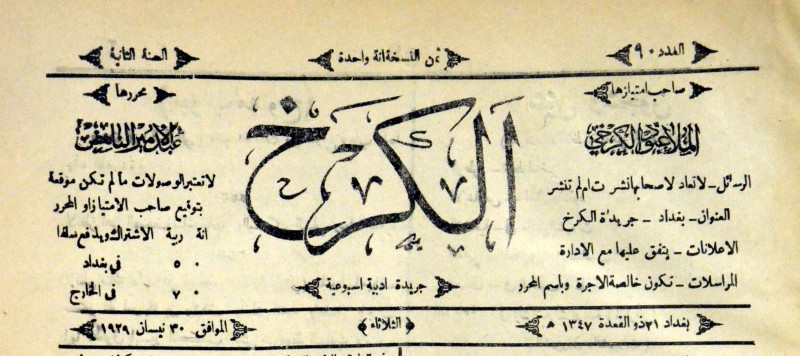 العدد ٩٠
ثمن النسخة انة واحدة
السنة الثانية
صاحب امتيازها
الملا عبود الكرخي
الرسائل ـ لا تعاد لاصحابها نشرت ام لم تنشر
العنوان ـ بغداد ـ جريدة الكرخ
الاعلانات ـ يتفق عليها مع الادارة
المراسلات ـ تكون خالصة الاجرة وباسم المحرر
الكرخ
جريدة ادبية اسبوعية
محررها
عبد الامير الناهض
لا تعتبر الوصولات مالم تكن موقعة
بتوقيع صاحب الامتياز او المحرر
انة ربية الاشتراك ويدفع سلفا
٥٠ في بغداد
٧٠ في الخارج
بغداد ٢١ ذو القعدة ١٣٤٧ هـ
الثلاثاء
الموافق ٣٠ نيسان ١٩٢٩